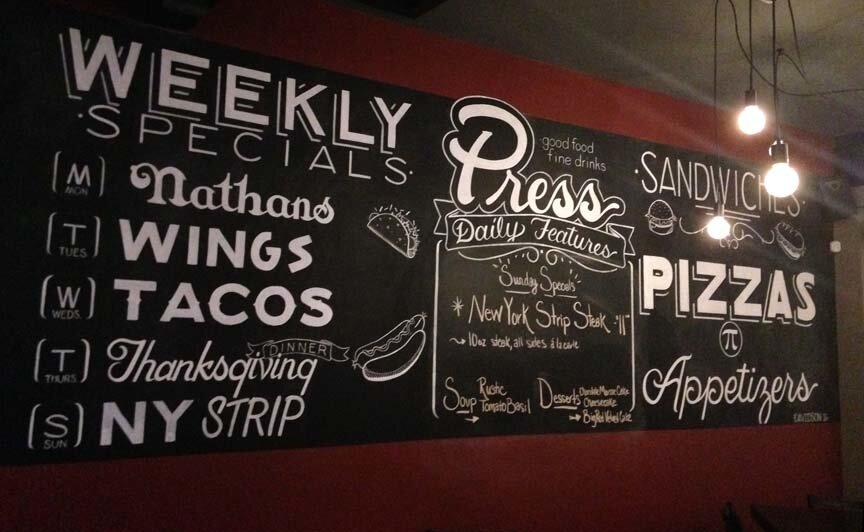 WEEKLY
·SPECIALS·
M
MON
Nathans
T
TUES.
WINGS
W
WEDS.
TACOS
T
THURS.
Thanksgiving
DINNER
S
SUN.
NY STRIP
good food
fine drinks
Press
Daily Features
Sunday Specials
* New York Strip Steak
10oz steak, all sides á la carte
Soup
Rustic
Tomato Basil
Desserts
Cheesecake
Big Red Velvet Cake
·SANDWICHES·
PIZZAS
π
Appetizers